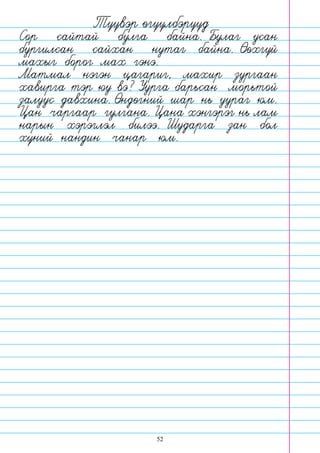 Түүвэр өгүүлбэрүүд
Сор сайтай булга байна. Булаг усан
бургилсан сайхан нутаг байна. Өөхгүй
махыг борог мах гэнэ.
Матмал нэгэн цагариг, махир зургаан
хавирга тэр юу вэ? Уурга барьсан морьтой
залуус давхина. Өндөгний шар нь уураг юм.
Цан чаргаар гулгана. Цана хэнгэрэг нь лам
нарын хэрэглэл билээ. Шударга зан бол
хүний нандин чанар юм.
52